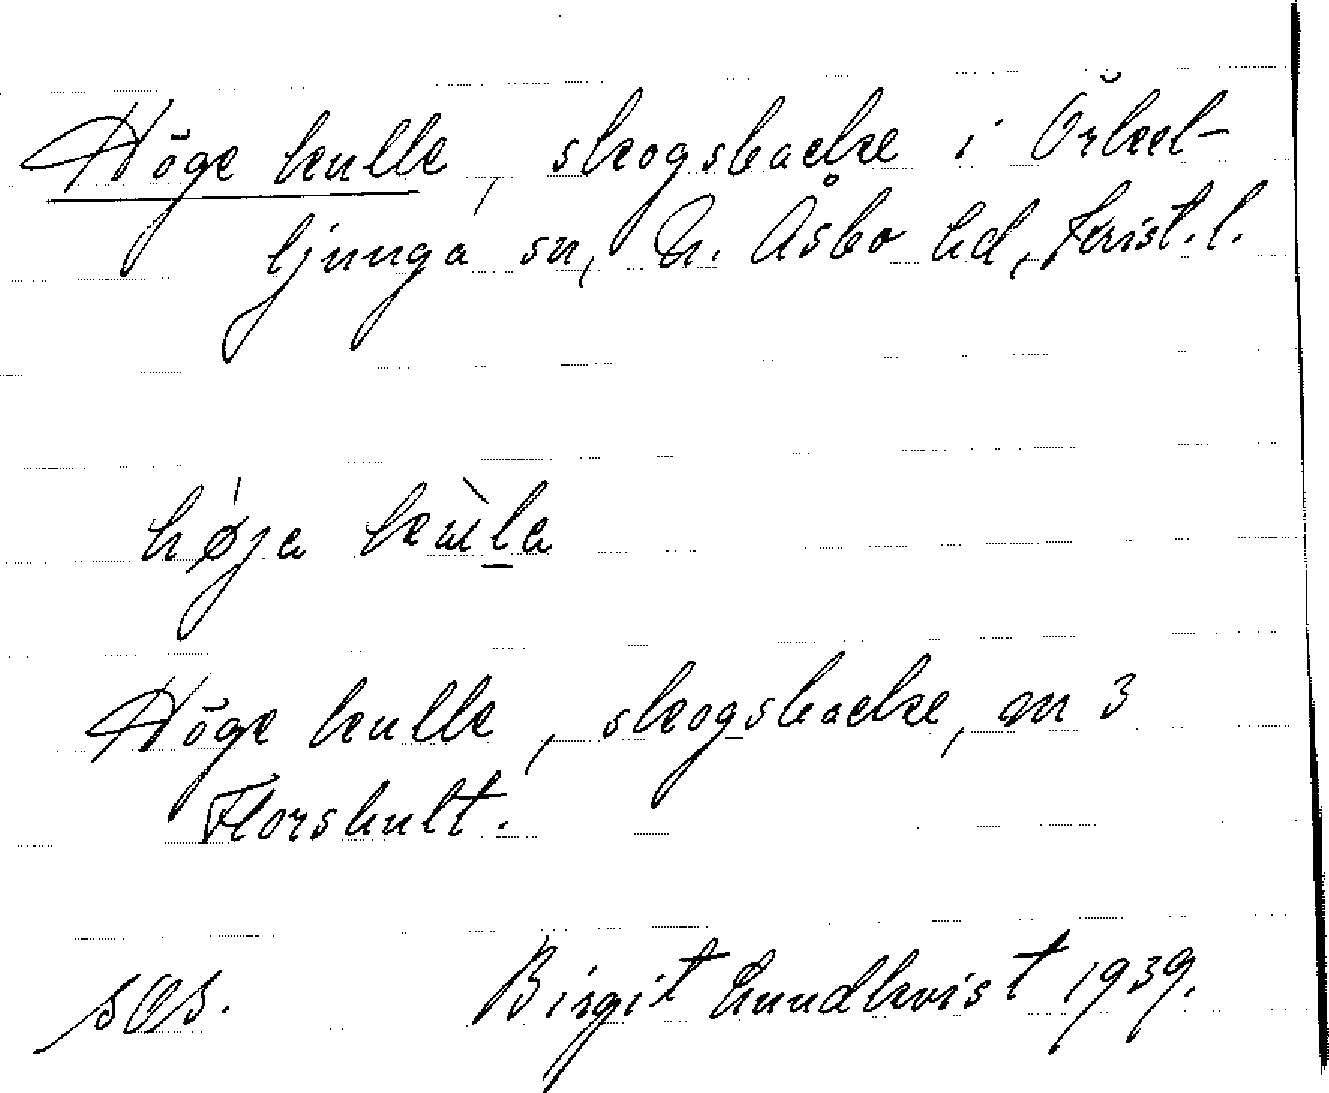 Höge kulle, skogsbacke i Örkel-
ljunga sn, N. Åsbo hd, Krist. l.
høja kula
Höge kulle, skogsbacke, nr 3
Florshult.
SOS. Birgit Lundkvist 1939.